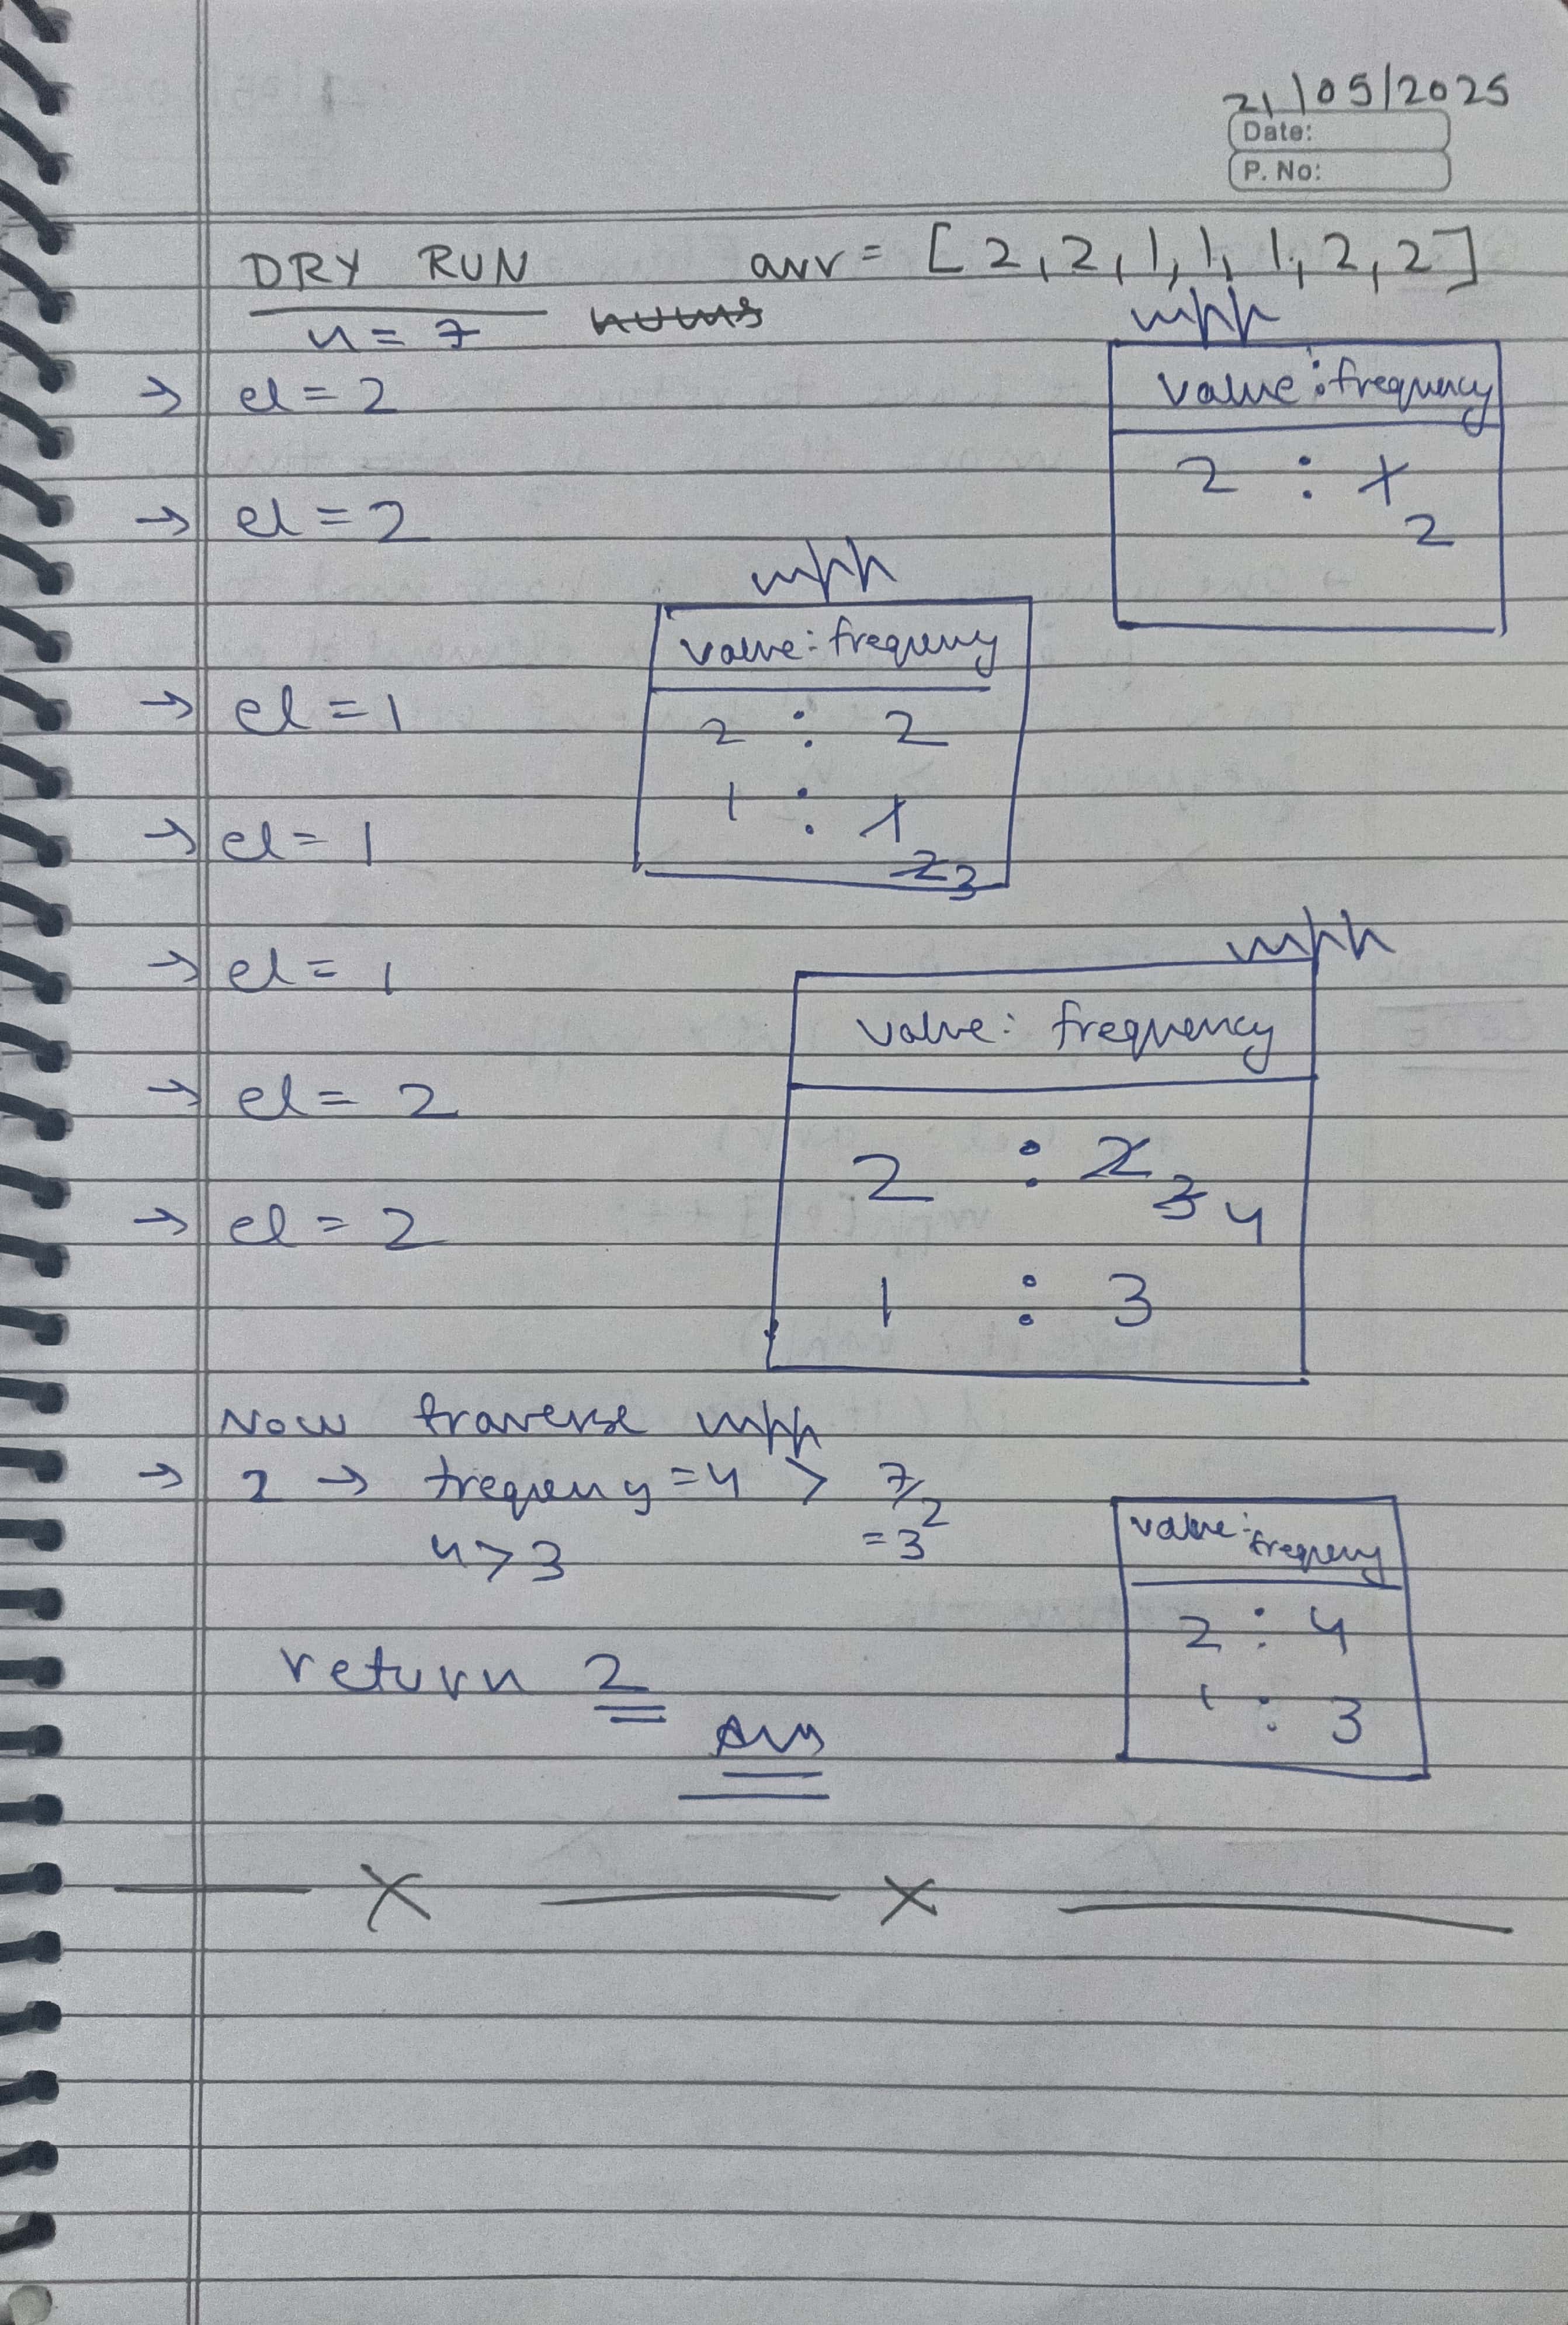 21/05/2025
Date:
P. No:
DRY RUN arr = [2, 2, 1, 1, 1, 2, 2]
n = 7 nums
mpp
value : frequency
2 : 1 2
→ el = 2
→ el = 2
mpp
value : frequency
2 : 2
1 : 1 2 3
→ el = 1
→ el = 1
→ el = 1
mpp
value : frequency
2 : 2 3 4
1 : 3
→ el = 2
→ el = 2
Now traverse mpp
→ 2 → frequency = 4 > 7/2
4 > 3 = 3
value : frequency
2 : 4
1 : 3
return 2
Ans